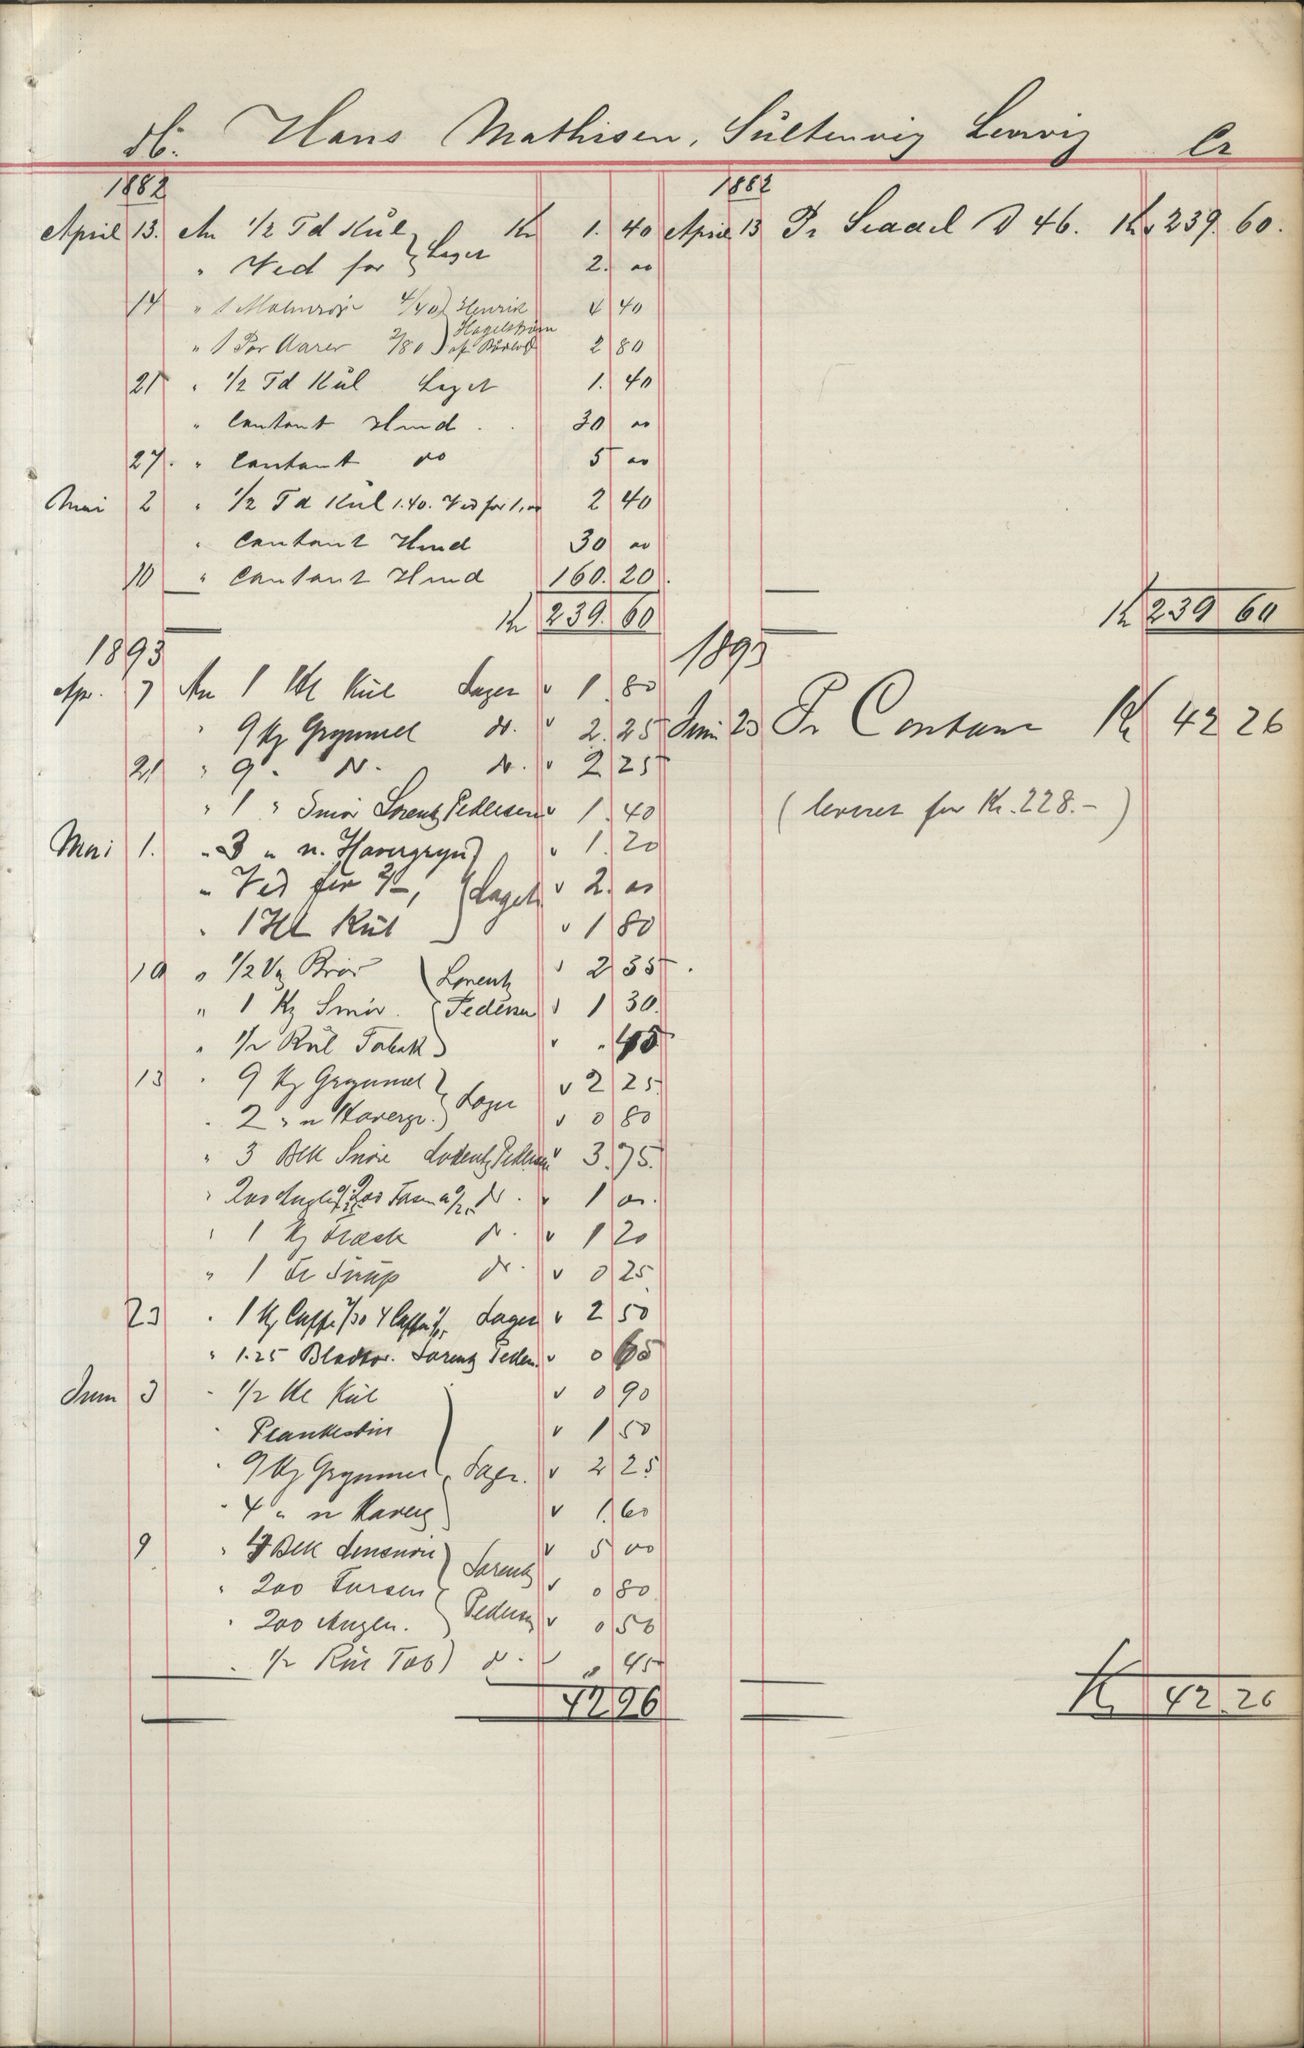 Db. Hans Mathisen, Sultenvig Lervig Cr
1882 1882
April 13. An 1/2 Td Kul Kr 1. 40 April 13 Pr Seddel D 46. Kr 239. 60.
" Ved for } Laget 2. 00
14 " 1 4/40 } Henrik 4 40
" 1 Par Aarer 2/80 } Hagelstrøm af 2 80
21 " 1/2 Td Kul Laget 1. 40
" Contant Hmd 30 00
27. " Contant do 5 00
Mai 2 " 1/2 Td Kul 1.40. Ved for 1,00 2 40
" Contant Hmd 30 00
10 " Contant Hmd 160. 20.
Kr 239. 60 Kr 239 60
1893 1893
Apr. 7 An 1 Hl Kul Lager v 1. 80
" 9 Kg Grynmel do. v 2. 25 Juni 23 Pr Contant Kr 42 26
21 " 9 " do. do. v 2 25
" 1 " Smør Lorentz Pedersen v 1. 40 (leveret for Kr. 228.-)
Mai 1. " 3 " n. Havregryn } v 1. 20
" Ved for 2/-, } Laget v 2. 00
" 1 Hl Kul v 1 80
10 " 1/2 Vg Brød { Lorentz v 2 35.
" 1 Kg Smør. { Pedersen v 1 30.
" 1/2 Rul Tobak } v " 45
13 " 9 Kg Grynmel } v 2 25.
" 2 " n Havregr. } Lager v 0 80
" 3 Btk Snøre Lorentz Pedersen v 3. 75.
" 200 Angler 200 do. v 1 00.
" 1 Kg Flesk do. v 1 20
" 1 Sirup do. v 0 25
23 " 1 Kg Caffe 4 Lager v 2 50
" 1.25 Lorentz Peders. v 0 65
Juni 3 " 1/2 Hl Kul v 0 90
" v 1 50
" 9 Kg Grynmel } Lager. v 2 25
" 4 " n Havreg v 1. 60
9 " 4 Btk } Lorentz v 5 00
" 200 { v 0 80
" 200 Angler. } Pedersen v 0 50
" 1/2 Rul Tob) do. v " 45
42 26 Kr 42. 26